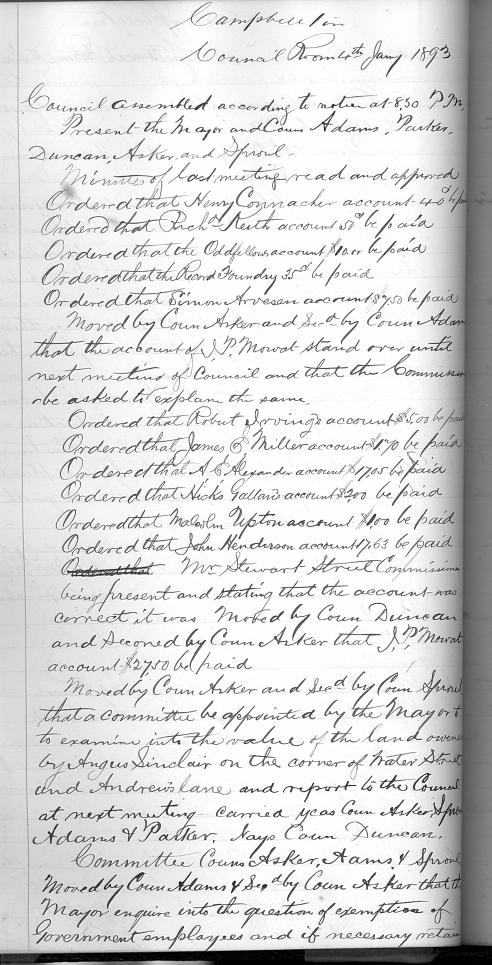 Campbellton
Council Room 4th Jany 1893
Council assembled according to notice at 8,30 P.M.
Present the Mayor and Coun Adams, Parker,
Duncan, Asker, and Sproul.
Minutes of last meeting read and approved
Ordered that Henry Connacher account 40 be
Ordered that Richd Keith account 50 be paid
Ordered that the Oddfellows account $10.00 be paid
Ordered that the Record Foundry 35 be paid
Ordered that Simon Arvesen account $7.50 be paid
Moved by Coun Asker and Secd by Coun Adam
that the account of J.P. Mowat stand over until
next meeting of Council and that the
be asked to explain the same.
Ordered that Robert Irvings account $5.00 be
Ordered that James Miller account $1.70 be paid
Ordered that A E Alexander account $17.05 be paid
Ordered that Hicks account $2.00 be paid
Ordered that Malcolm Upton account $1.00 be paid
Ordered that John Henderson account 17,63 be paid
Ordered that Mr Stewart Street
being present and stating that the account was
correct it was Moved by Coun Duncan
and Seconed by Coun Asker that J.P. Mowat
account $27.50 be paid
Moved by Coun Asker and Secd by Coun Sproul
that a committee be appointed by the Mayor t
to examine into the value of the land
by Angus Sinclair on the corner of Water Street
and Andrew lane and report to the Council
at next meeting carried yeas Coun Asker, Spro
Adams & Parker. Nays Coun Duncan.
Committee Couns Asker, Aams, & Sproul
Moved by Coun Adams & Secd by Coun Asker that th
Mayor enquire into the question of exemption of
Government employees and if necessary